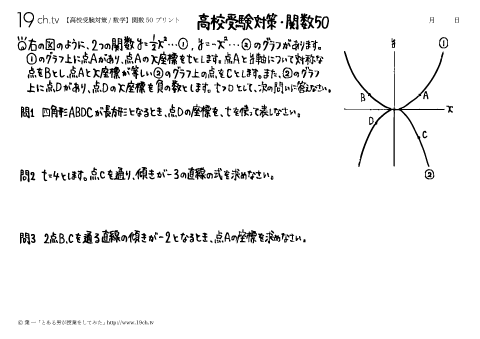 19 ch.tv 【高校受験対策/数学】関数50 プリント
高校受験対策・関数50
月 日
右の図のように、2つの関数 y=½x²…①, y=-x²…② のグラフがあります。
①のグラフ上に点Aがあり、点Aのx座標をtとします。点Aとy軸について対称な
点をBとし、点Aとx座標が等しい②のグラフ上の点をCとします。また、②のグラフ
上に点Dがあり、点Dのx座標を負の数とします。t>0として、次の問いに答えなさい。
問1 四角形ABDCが長方形となるとき、点Dの座標を、tを使って表しなさい。
問2 t=4とします。点Cを通り、傾きが-3の直線の式を求めなさい。
問3 2点B,Cを通る直線の傾きが-2となるとき、点Aの座標を求めなさい。
y
①
B
A
x
D
C
②
© 葉一「とある男が授業をしてみた」http://www.19ch.tv